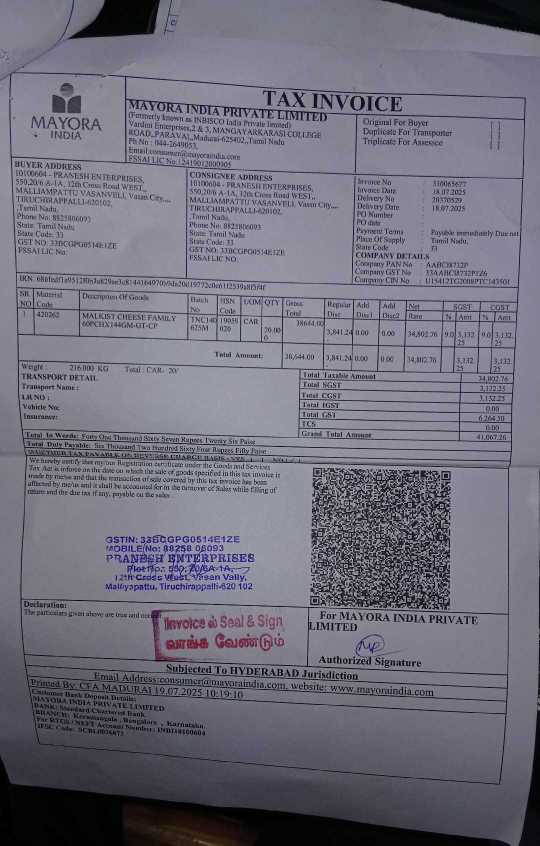 TAX INVOICE
MAYORA
INDIA
MAYORA INDIA PRIVATE LIMITED
(Formerly known as INBISCO India Private limited)
Vardini Enterprises,2 & 3, MANGAYARKARASI COLLEGE
ROAD,,PARAVAI,,Madurai-625402,,Tamil Nadu
Ph No : 044-2649053,
Email:consumer@mayoraindia.com
FSSAI LIC No:12419012000905
Original For Buyer
Duplicate For Transporter
Triplicate For Assessee
BUYER ADDRESS
10100604 - PRANESH ENTERPRISES,
550,20/6 A-1A, 12th Cross Road WEST,,
MALLIAMPATTU VASANVELI, Vasan City,,,,
TIRUCHIRAPPALLI-620102,
,Tamil Nadu,
Phone No: 8825806093
State: Tamil Nadu
State Code: 33
GST NO: 33BCGPG0514E1ZE
FSSAI LIC No:
CONSIGNEE ADDRESS
10100604 - PRANESH ENTERPRISES,
550,20/6 A-1A, 12th Cross Road WEST,,
MALLIAMPATTU VASANVELI, Vasan City,,,,
TIRUCHIRAPPALLI-620102,
,Tamil Nadu,
Phone No: 8825806093
State: Tamil Nadu
State Code: 33
GST NO: 33BCGPG0514E1ZE
FSSAI LIC No:
Invoice No : 330065677
Invoice Date : 18.07.2025
Delivery No : 20370529
Delivery Date : 18.07.2025
PO Number :
PO date :
Payment Terms : Payable immediately Due net
Place Of Supply : Tamil Nadu,
State Code : 33
COMPANY DETAILS
Company PAN No : AABCI8732P
Company GST No : 33AABCI8732P1Z6
Company CIN No : U15412TG2008PTC143501
SR NO Material Code Description Of Goods Batch No HSN Code UOM QTY Gross Total Regular Disc Add Disc1 Add Disc2 Net Rate SGST % Amt CGST % Amt
1 420262 MALKIST CHEESE FAMILY 60PCHX144GM-GT-CP TNC140625M 19059020 CAR 20.000 38644.00 3,841.24- 0.00 0.00 34,802.76 9.0 3,132.25 9.0 3,132.25
Total Amount: 38,644.00 3,841.24- 0.00 0.00 34,802.76 3,132.25 3,132.25
Weight : 216.000 KG Total : CAR- 20/
TRANSPORT DETAIL
Transport Name :
LR NO :
Vehicle No:
Insurance:
Total Taxable Amount 34,802.76
Total SGST 3,132.25
Total CGST 3,132.25
Total IGST 0.00
Total GST 6,264.50
TCS 0.00
Grand Total Amount 41,067.26
Total In Words: Forty One Thousand Sixty Seven Rupees Twenty Six Paise
Total Duty Payable: Six Thousand Two Hundred Sixty Four Rupees Fifty Paise
We hereby certify that my/our Registration certificate under the Goods and Services
Tax Act is inforce on the date on which the sale of goods specified in this tax invoice is
made by me/us and that the transaction of sale covered by this tax invoice has been
affected by me/us and it shall be accounted for in the turnover of Sales while filling of
return and the due tax if any, payable on the sales .
GSTIN: 33BCGPG0514E1ZE
MOBILE/No: 88258 06093
PRANESH ENTERPRISES
Plot No.: 550, 20/6A-1A,
12th Cross West, Vasan Vally,
Malliyapattu, Tiruchirappalli-620 102
Declaration:
The particulars given above are true and
Invoice ல் Seal & Sign
வாங்க வேண்டும்
For MAYORA INDIA PRIVATE
LIMITED
Authorized Signature
Subjected To HYDERABAD Jurisdiction
Email Address:consumer@mayoraindia.com, website: www.mayoraindia.com
Printed By: CFA MADURAI 19.07.2025 10:19:10
Customer Bank Deposit Details:
MAYORA INDIA PRIVATE LIMITED
BANK: Standard Chartered Bank
BRANCH: Koramangala , Bangalore , Karnataka.
For RTGS / NEFT Account Number: INBI10100604
IFSC Code: SCBL0036073